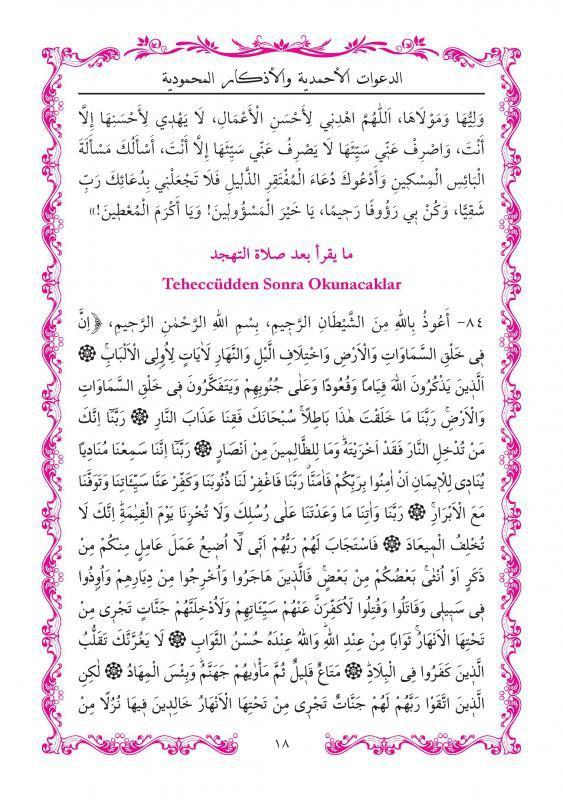 الدعوات الأحمدية والأذكار المحمودية
وَلِيُّهَا وَمَوْلَاهَا، اَللّٰهُمَّ اهْدِنِي لِأَحْسَنِ الْأَعْمَالِ، لَا يَهْدِي لِأَحْسَنِهَا إِلَّا
أَنْتَ، وَاصْرِفْ عَنِّي سَيِّئَهَا لَا يَصْرِفُ عَنِّي سَيِّئَهَا إِلَّا أَنْتَ، أَسْأَلُكَ مَسْأَلَةَ
الْبَائِسِ الْمِسْكِينِ وَأَدْعُوكَ دُعَاءَ الْمُفْتَقِرِ الذَّلِيلِ فَلَا تَجْعَلْنِي بِدُعَائِكَ رَبِّ
شَقِيًّا، وَكُنْ بِي رَؤُوفًا رَحِيمًا، يَا خَيْرَ الْمَسْؤُولِينَ! وَيَا أَكْرَمَ الْمُعْطِينَ!»
ما يقرأ بعد صلاة التهجد
Teheccüdden Sonra Okunacaklar
٨٤- أَعُوذُ بِاللهِ مِنَ الشَّيْطَانِ الرَّجِيمِ، بِسْمِ اللهِ الرَّحْمٰنِ الرَّحِيمِ، ﴿إِنَّ
فِي خَلْقِ السَّمَاوَاتِ وَالْاَرْضِ وَاخْتِلَافِ الَّيْلِ وَالنَّهَارِ لَاٰيَاتٍ لِاُولِى الْاَلْبَابِۚ ۞
اَلَّذِينَ يَذْكُرُونَ اللهَ قِيَامًا وَقُعُودًا وَعَلٰى جُنُوبِهِمْ وَيَتَفَكَّرُونَ فِى خَلْقِ السَّمَاوَاتِ
وَالْاَرْضِۚ رَبَّنَا مَا خَلَقْتَ هٰذَا بَاطِلًاۚ سُبْحَانَكَ فَقِنَا عَذَابَ النَّارِ ۞ رَبَّنَٓا اِنَّكَ
مَنْ تُدْخِلِ النَّارَ فَقَدْ اَخْزَيْتَهُۜ وَمَا لِلظَّالِمِينَ مِنْ اَنْصَارٍ ۞ رَبَّنَٓا اِنَّنَا سَمِعْنَا مُنَادِيًا
يُنَادِى لِلْاِيمَانِ اَنْ اٰمِنُوا بِرَبِّكُمْ فَاٰمَنَّاۗ رَبَّنَا فَاغْفِرْ لَنَا ذُنُوبَنَا وَكَفِّرْ عَنَّا سَيِّئَاتِنَا وَتَوَفَّنَا
مَعَ الْاَبْرَارِۚ ۞ رَبَّنَا وَاٰتِنَا مَا وَعَدْتَنَا عَلٰى رُسُلِكَ وَلَا تُخْزِنَا يَوْمَ الْقِيٰمَةِۜ اِنَّكَ لَا
تُخْلِفُ الْمِيعَادَ ۞ فَاسْتَجَابَ لَهُمْ رَبُّهُمْ اَنِّى لَٓا اُضِيعُ عَمَلَ عَامِلٍ مِنْكُمْ مِنْ
ذَكَرٍ اَوْ اُنْثٰىۚ بَعْضُكُمْ مِنْ بَعْضٍۚ فَالَّذِينَ هَاجَرُوا وَاُخْرِجُوا مِنْ دِيَارِهِمْ وَاُوذُوا
فِى سَبِيلِى وَقَاتَلُوا وَقُتِلُوا لَاُكَفِّرَنَّ عَنْهُمْ سَيِّئَاتِهِمْ وَلَاُدْخِلَنَّهُمْ جَنَّاتٍ تَجْرِى مِنْ
تَحْتِهَا الْاَنْهَارُۚ ثَوَابًا مِنْ عِنْدِ اللهِۜ وَاللهُ عِنْدَهُ حُسْنُ الثَّوَابِ ۞ لَا يَغُرَّنَّكَ تَقَلُّبُ
الَّذِينَ كَفَرُوا فِى الْبِلَادِۜ ۞ مَتَاعٌ قَلِيلٌ ثُمَّ مَأْوٰيهُمْ جَهَنَّمُۜ وَبِئْسَ الْمِهَادُ ۞ لٰكِنِ
الَّذِينَ اتَّقَوْا رَبَّهُمْ لَهُمْ جَنَّاتٌ تَجْرِى مِنْ تَحْتِهَا الْاَنْهَارُ خَالِدِينَ فِيهَا نُزُلًا مِنْ
١٨